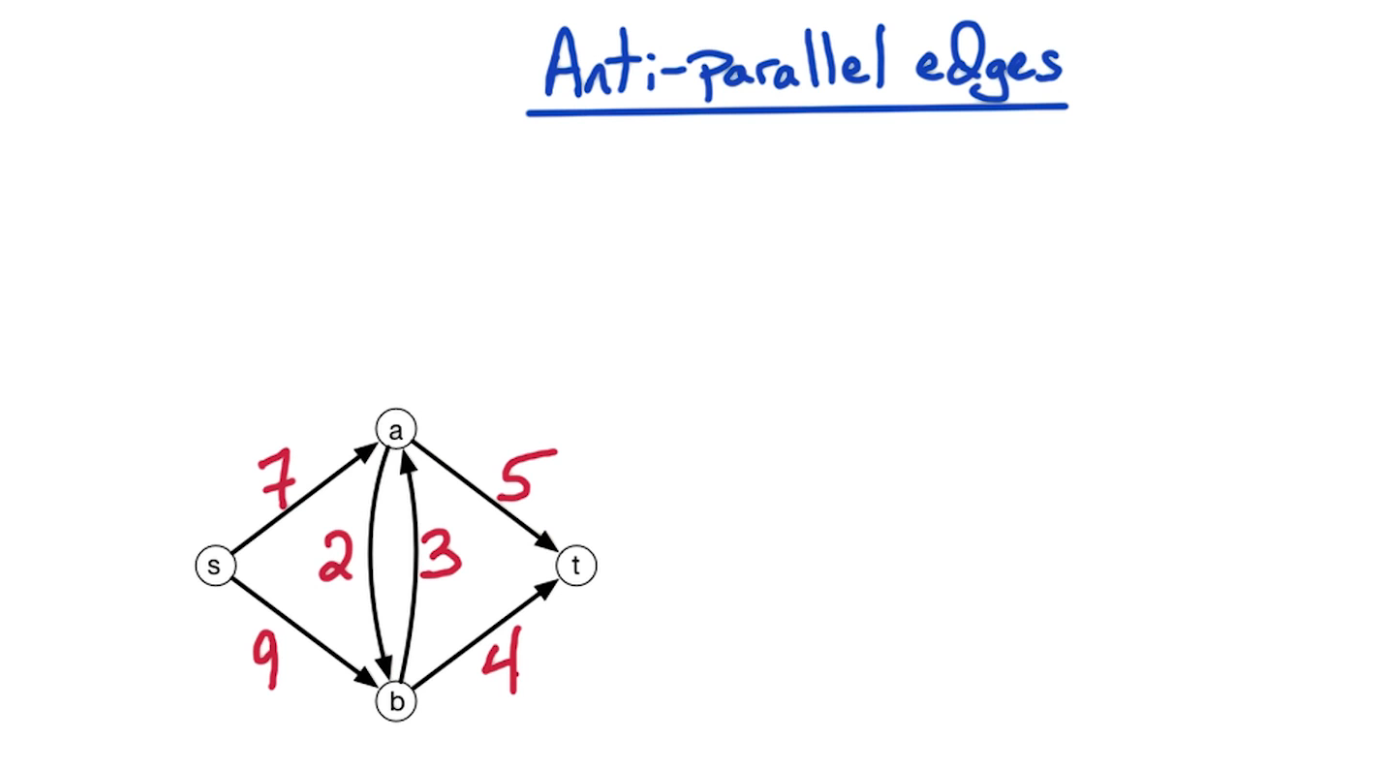 Anti-parallel edges
a
7
5
2
3
s
t
9
4
b